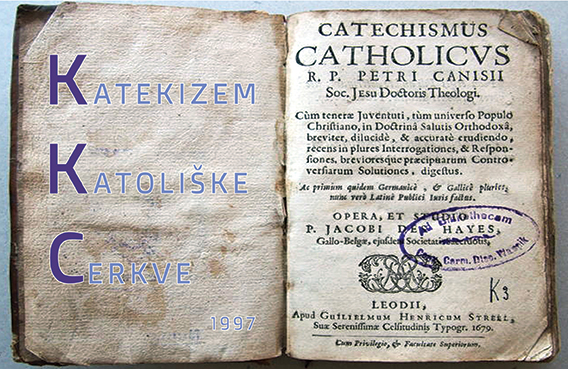 KATEKIZEM
KATOLIŠKE
CERKVE
1997
CATECHISMUS
CATHOLICVS
R. P. PETRI CANISII
Soc. JESU Doctoris Theologi.
Cùm teneræ Juventuti, tùm universo Populo
Christiano, in Doctrinâ Salutis Orthodoxâ,
breviter, dilucidè, & accuratè erudiendo,
recens in plures Interrogationes, & Respon-
siones, brevioresque præcipuarum Contro-
versiarum Solutiones, digestus.
Ac primùm quidem Germanicè, & Gallicè
nunc verò Latinè Publici Iuris factus.
OPERA, ET STUDIO
P. JACOBI DES HAYES,
Gallo-Belgæ, ejusdem Societatis
Ad Bibliothecam
Carm. Disc.
K3
LEODII,
Apud GUILIELMUM HENRICUM STREEL,
Suæ Serenissimæ Celsitudinis Typogr. 1679.
Cum Privilegio, & Facultate Superiorum.